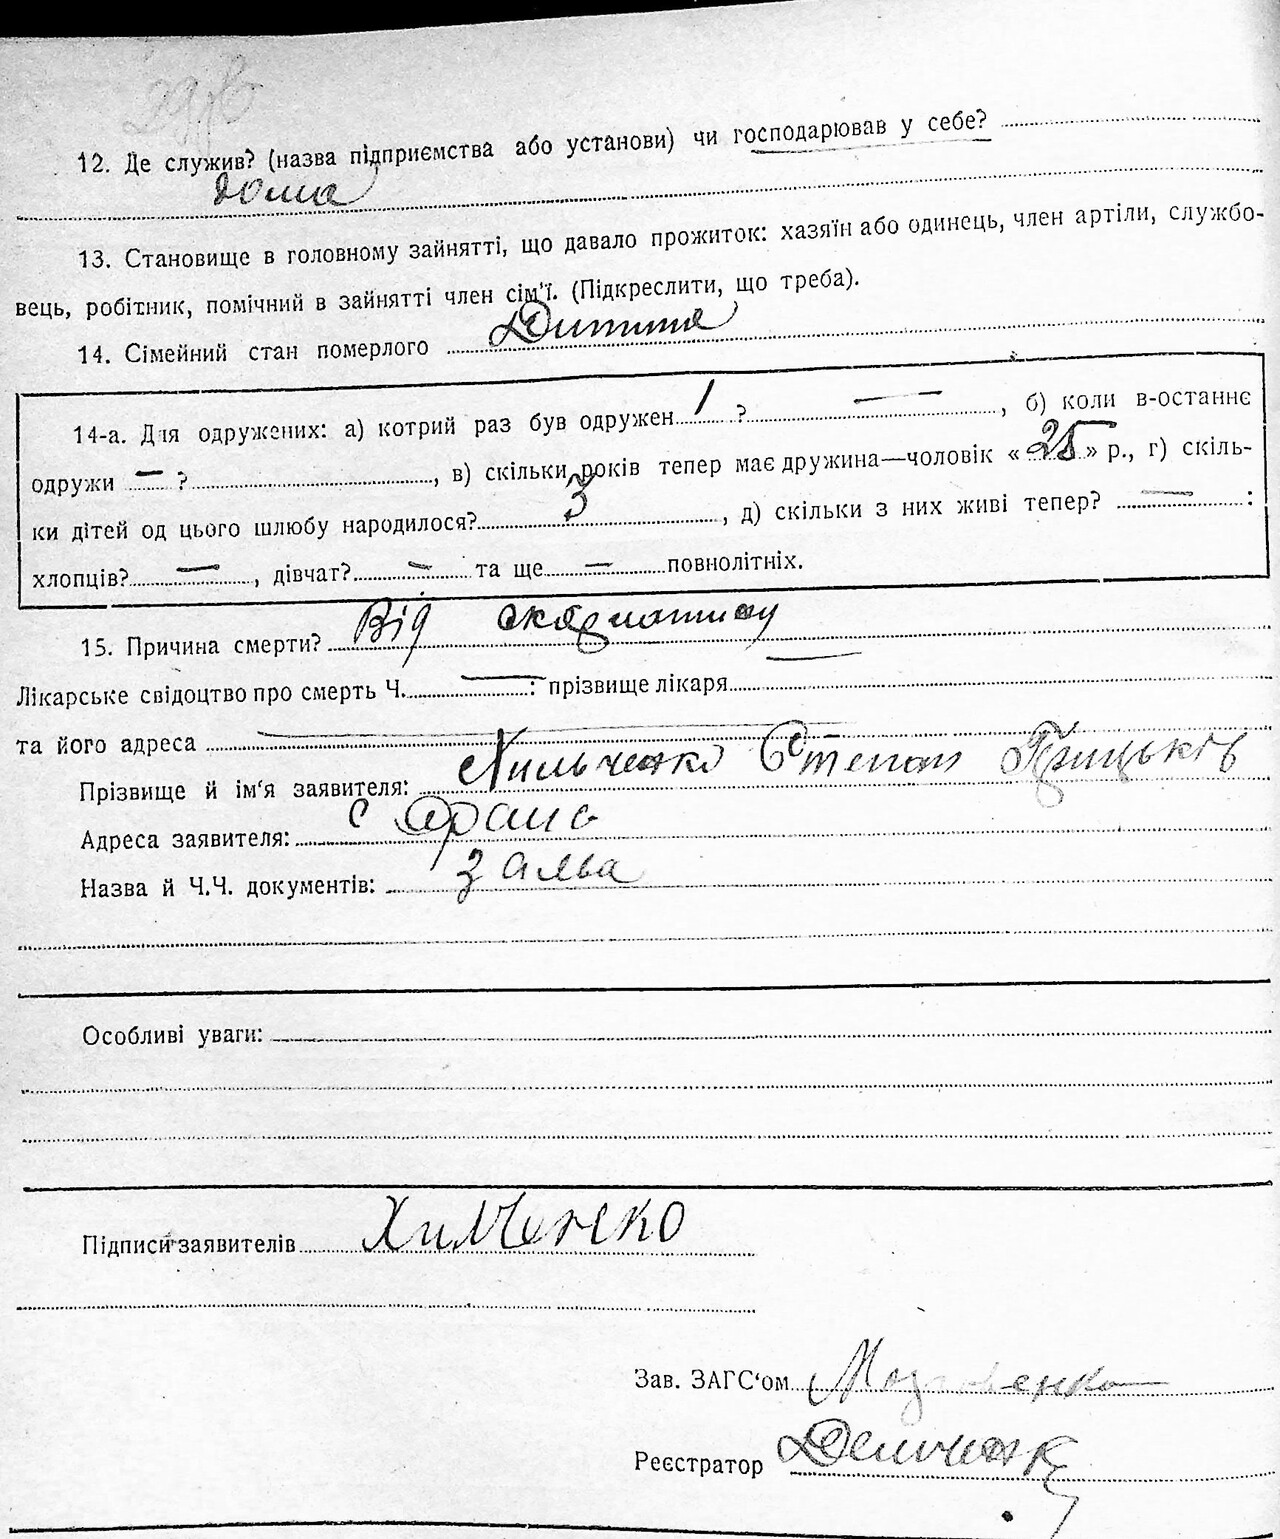 12. Де служив? (назва підприємства або установи) чи господарював у себе?
дома
13. Становище в головному зайнятті, що давало прожиток: хазяїн або одинець, член артіли, службо-
вець, робітник, помічний в зайнятті член сім'ї. (Підкреслити, що треба).
14. Сімейний стан померлого Дитина
14-а. Для одружених: а) котрий раз був одружен / ? — , б) коли в-останнє
одружи — ? , в) скільки років тепер має дружина—чоловік « 25 » р., г) скіль-
ки дітей од цього шлюбу народилося? 3 , д) скільки з них живі тепер? — :
хлопців? — , дівчат? — та ще — повнолітніх.
15. Причина смерти? Від
Лікарське свідоцтво про смерть Ч. — : прізвище лікаря —
та його адреса —
Прізвище й ім'я заявителя: Степан Грицьків
Адреса заявителя: с
Назва й Ч.Ч. документів: заява
Особливі уваги:
Підписи заявителів Химченко
Зав. ЗАГС'ом
Реєстратор